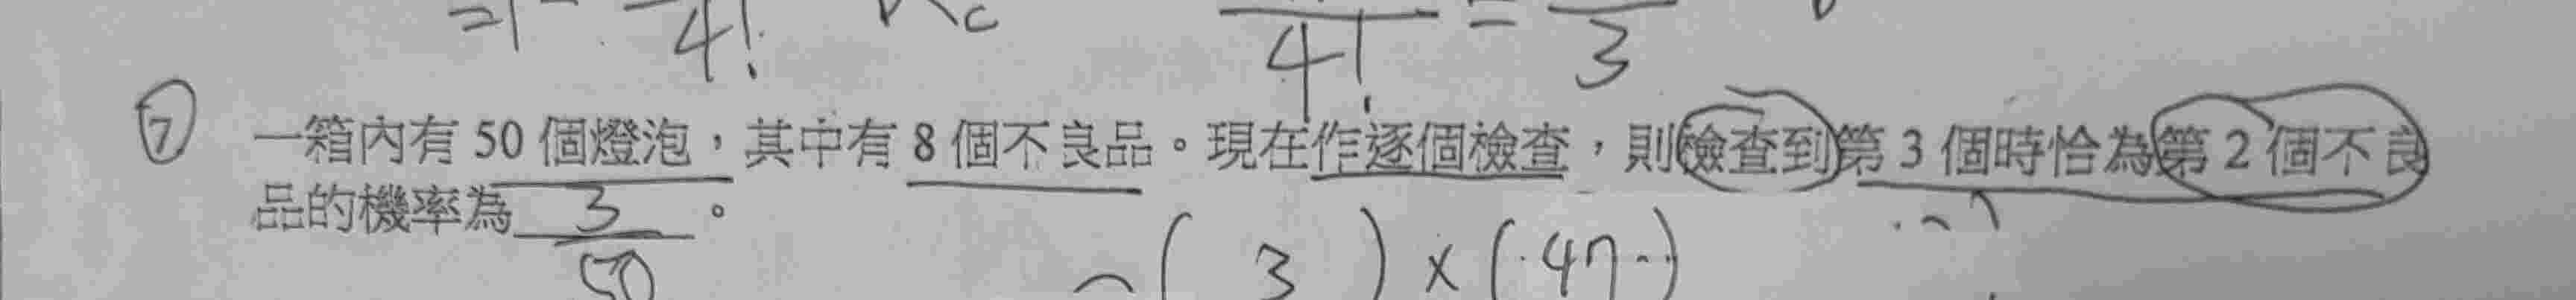 =1- 4! 4! = 3
⑦ 一箱內有 50 個燈泡，其中有 8 個不良品。現在作逐個檢查，則檢查到第 3 個時恰為第 2 個不良
品的機率為 3/50 。
( 3 ) × ( 47 )